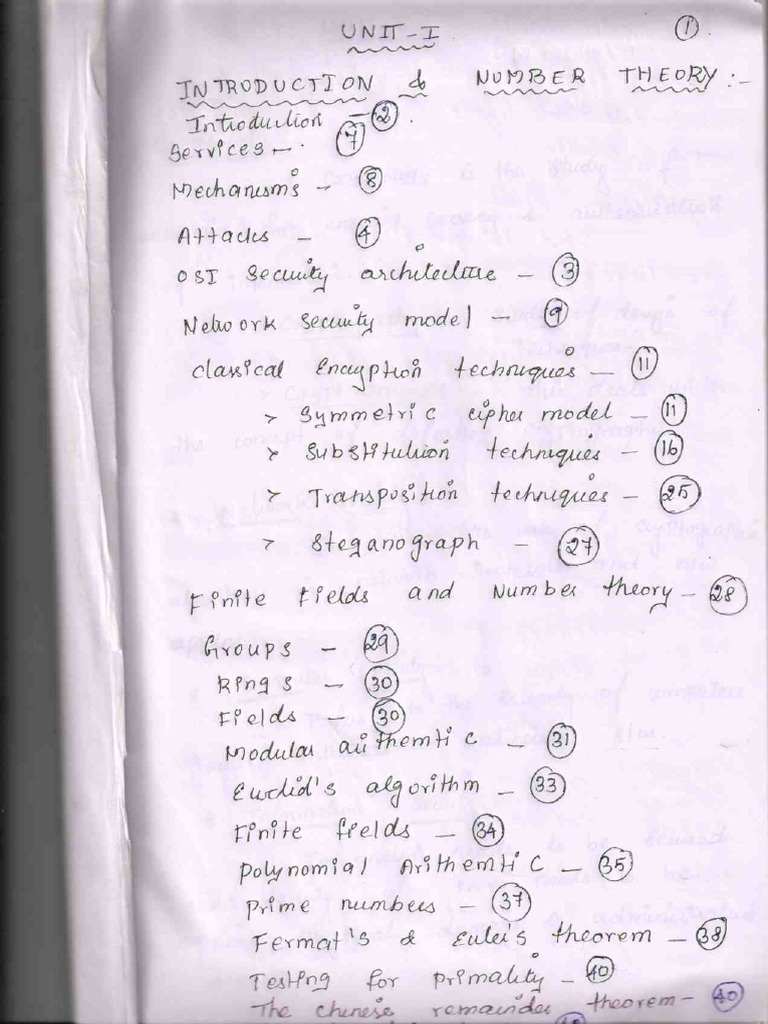 UNIT-I ①
INTRODUCTION & NUMBER THEORY:-
Introduction - ②.
Services - ⑦
Mechanisms - ⑧
Attacks - ④
OSI Security architecture - ③
Network Security model - ⑨
Classical Encryption techniques - ⑪
> Symmetric cipher model - ⑪
> Substitution techniques - ⑯
> Transposition techniques - ㉕
> Steganograph - ㉗
Finite Fields and Number theory - ㉘
Groups - ㉙
Rings - ㉚
Fields - ㉚
Modular aithemtic - ㉛
Euclid's algorithm - ㉝
Finite fields - ㉞
Polynomial Arithemtic - ㉟
Prime numbers - ㊲
Fermat's & Euler's theorem - ㊳
Testing for primality - ㊵
The chinese remainder theorem - ㊵